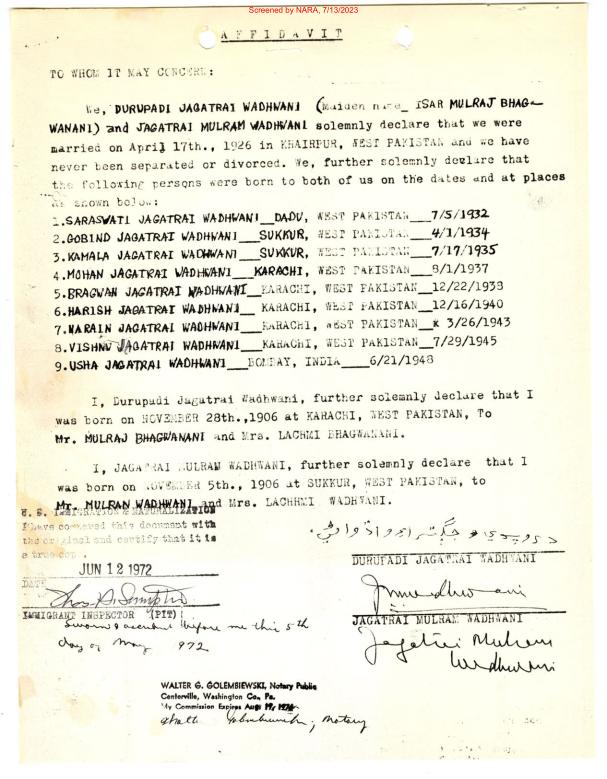 Screened by NARA, 7/13/2023
AFFIDAVIT
TO WHOM IT MAY CONCERN:
We, DURUPADI JAGATRAI WADHWANI (Maiden name_ ISAR MULRAJ BHAG-
WANANI) and JAGATRAI MULRAM WADHWANI solemnly declare that we were
married on April 17th., 1926 in KHAIRPUR, WEST PAKISTAN and we have
never been separated or divorced. We, further solemnly declare that
the following persons were born to both of us on the dates and at places
as shown below:
1.SARASWATI JAGATRAI WADHWANI__DADU, WEST PAKISTAN__7/5/1932
2.GOBIND JAGATRAI WADHWANI__SUKKUR, WEST PAKISTAN__4/1/1934
3.KAMALA JAGATRAI WADHWANI__SUKKUR, WEST PAKISTAN__7/17/1935
4.MOHAN JAGATRAI WADHWANI__KARACHI, WEST PAKISTAN__8/1/1937
5.BHAGWAN JAGATRAI WADHWANI__KARACHI, WEST PAKISTAN__12/22/1938
6.HARISH JAGATRAI WADHWANI__KARACHI, WEST PAKISTAN__12/16/1940
7.NARAIN JAGATRAI WADHWANI__KARACHI, WEST PAKISTAN__x 3/26/1943
8.VISHNU JAGATRAI WADHWANI___KARACHI, WEST PAKISTAN__7/29/1945
9.USHA JAGATRAI WADHWANI__BOMBAY, INDIA____6/21/1948
I, Durupadi Jagatrai Wadhwani, further solemnly declare that I
was born on NOVEMBER 28th.,1906 at KARACHI, WEST PAKISTAN, To
Mr. MULRAJ BHAGWANANI and Mrs. LACHMI BHAGWANANI.
I, JAGATRAI MULRAM WADHWANI, further solemnly declare that I
was born on NOVEMBER 5th., 1906 at SUKKUR, WEST PAKISTAN, to
Mr. MULRAM WADHWANI and Mrs. LACHHMI WADHWANI.
U. S. IMMIGRATION & NATURALIZATION
I have compared this document with
the original and certify that it is
a true copy.
DURUPADI JAGATRAI WADHWANI
JUN 12 1972
DATE
IMMIGRANT INSPECTOR (PIT)
JAGATRAI MULRAM WADHWANI
before me this 5th
day of May 972
Jagatrai Mulram
Wadhwani
WALTER G. GOLEMBIEWSKI, Notary Public
Centerville, Washington Co., Pa.
My Commission Expires Aug 19, 1974
Notary